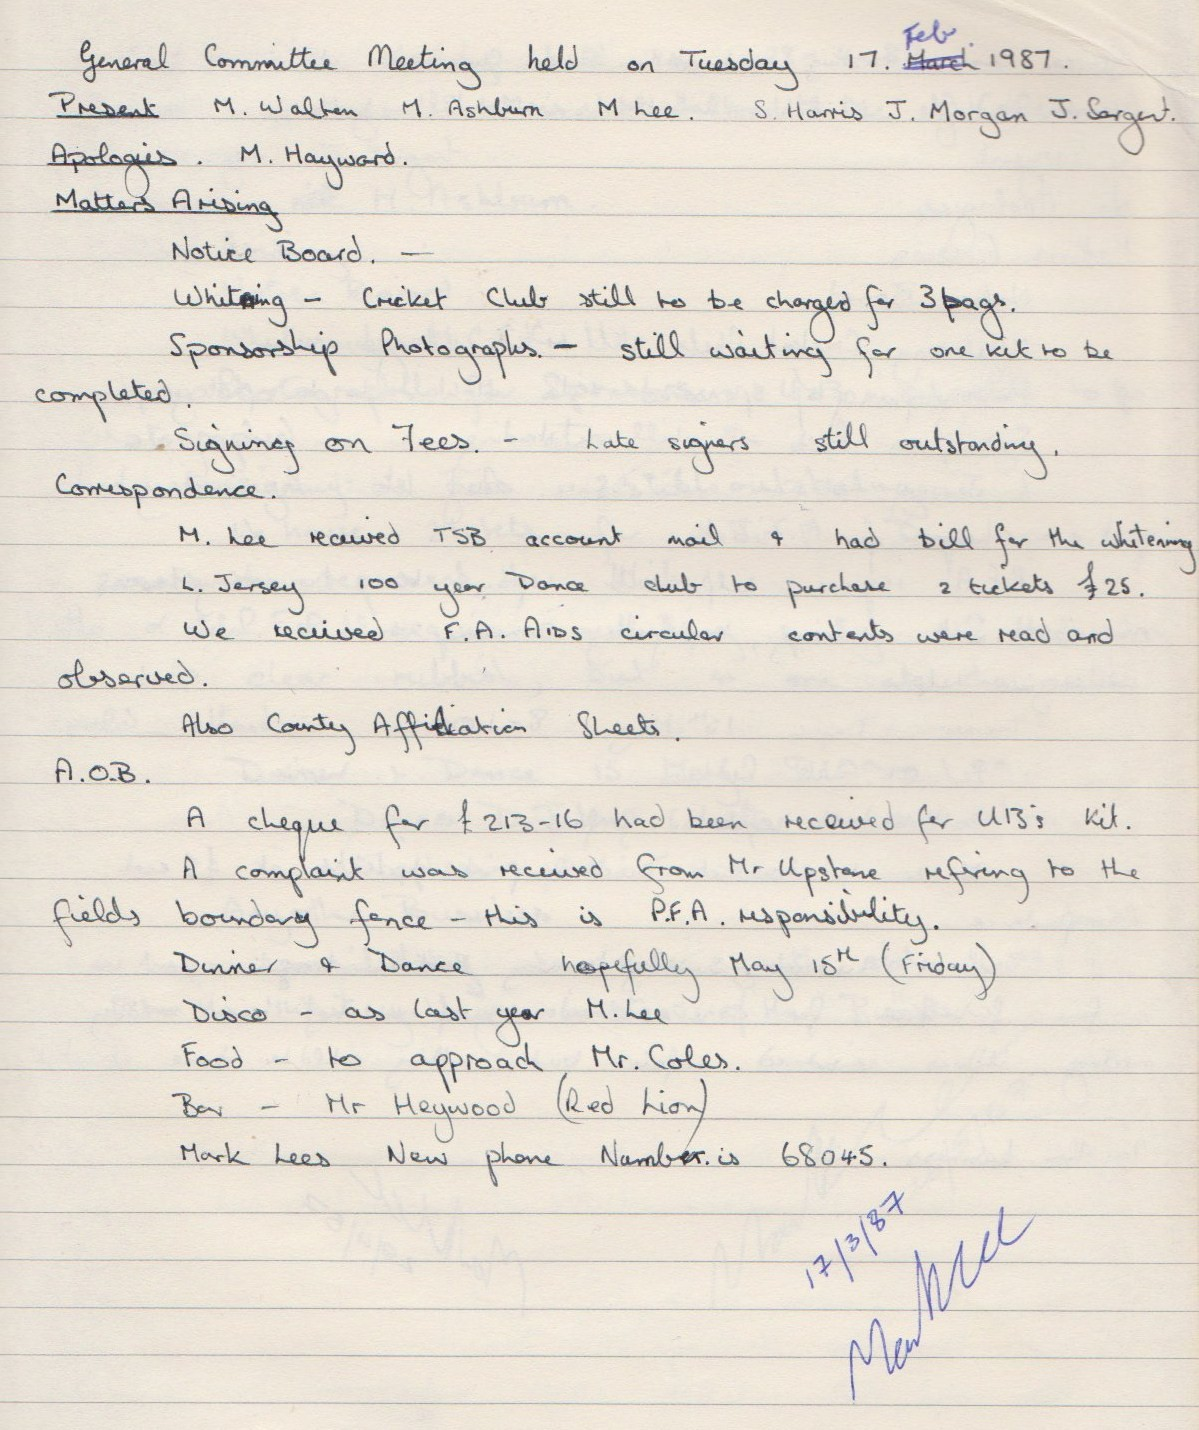 General Committee Meeting held on Tuesday 17. Feb. March 1987.
Present M. Walten M. Ashburn M Lee. S. Harris J. Morgan J. Sargent.
Apologies. M. Hayward.
Matters Arising
Notice Board. —
Whitening - Cricket Club still to be charged for 3 bags.
Sponsorship Photographs. - still waiting for one kit to be
completed.
Signing on Fees. - Late signers still outstanding.
Correspondence.
M. Lee received TSB account mail & had bill for the whitening
L. Jersey 100 year Dance club to purchase 2 tickets £25.
We received F.A. AIDS circular contents were read and
observed.
Also County Affiliation Sheets.
A.O.B.
A cheque for £213-16 had been received for U13s Kit.
A complaint was received from Mr Upstone refering to the
fields boundary fence - this is P.F.A. responsibility.
Dinner & Dance hopefully May 15th (Friday)
Disco - as last year M. Lee
Food - to approach Mr. Coles.
Bar - Mr Heywood (Red Lion)
Mark Lees New phone Number is 68045.
17/3/87
Mark Lee